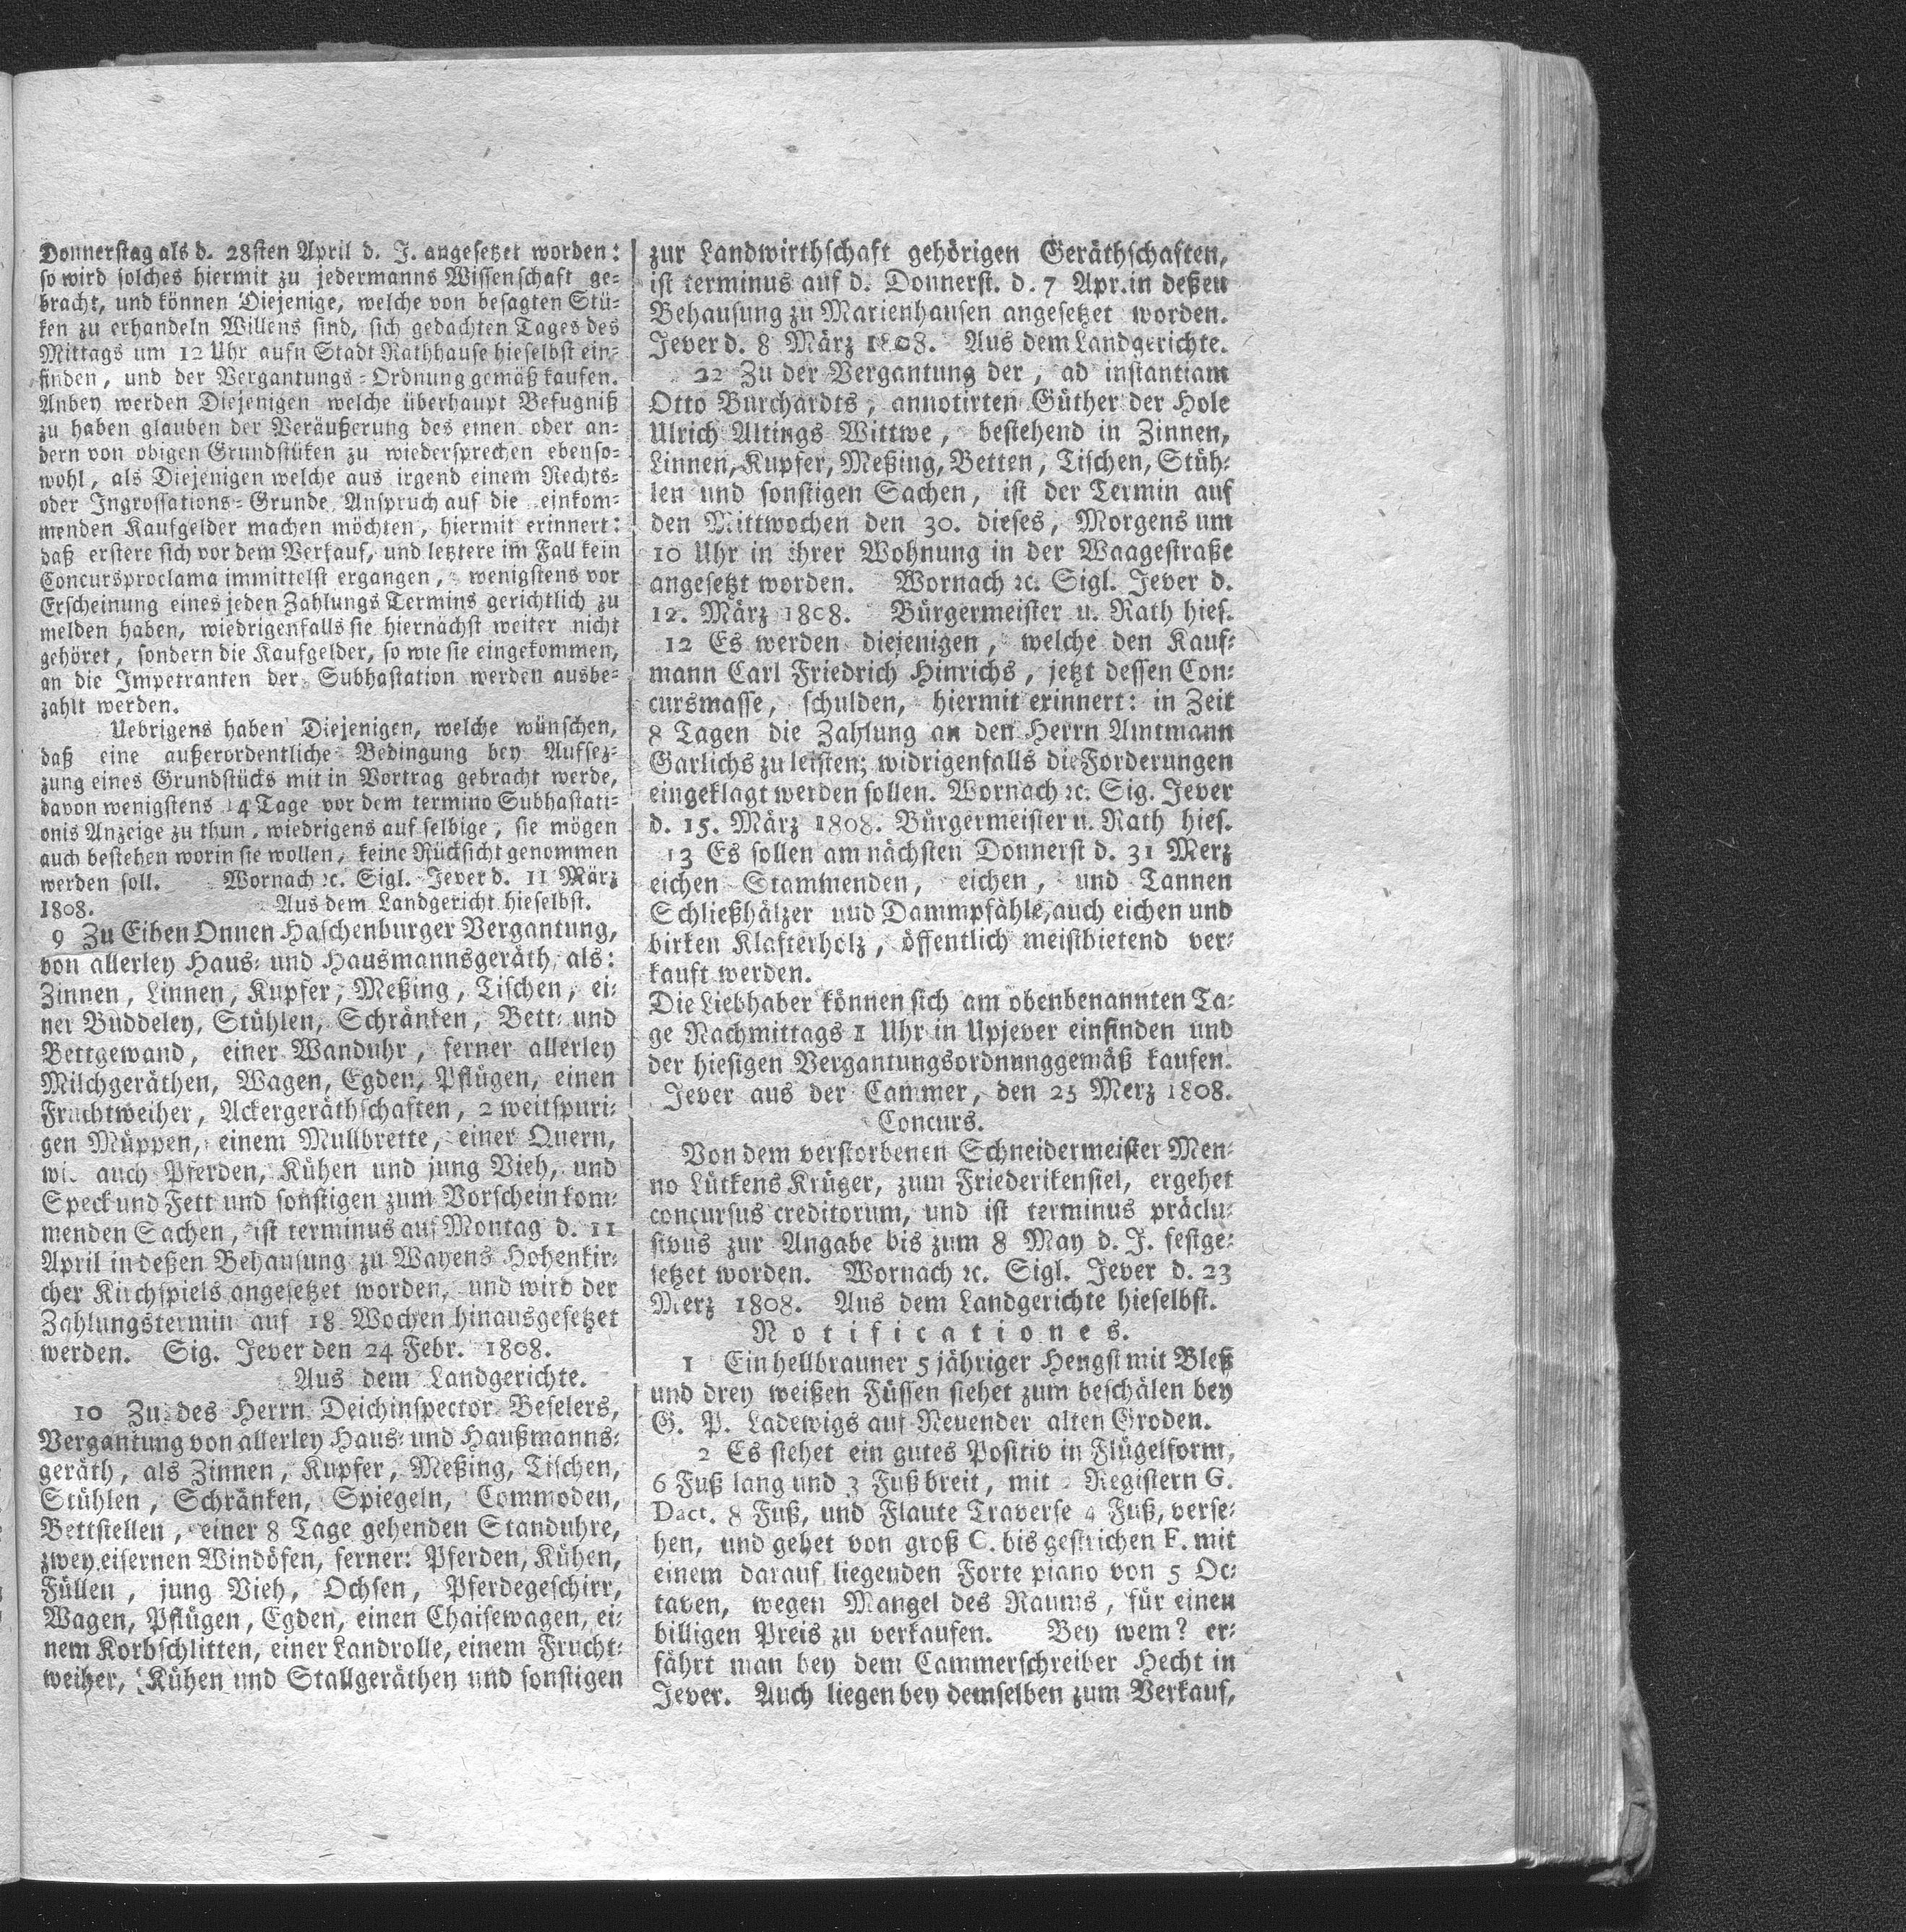 Donnerstag als d. 28sten April d. J. angesetzet worden:
so wird solches hiermit zu jedermanns Wissenschaft ge-
bracht, und können Diejenige, welche von besagten Stü-
ken zu erhandeln Willens sind, sich gedachten Tages des
Mittags um 12 Uhr aufn Stadt Rathhause hieselbst ein-
finden, und der Vergantungs-Ordnung gemäß kaufen.
Anbey werden Diejenigen welche überhaupt Befugniß
zu haben glauben der Veräußerung des einen oder an-
dern von obigen Grundstüken zu wiedersprechen ebenso-
wohl, als Diejenigen welche aus irgend einem Rechts-
oder Ingrossations-Grunde Anspruch auf die einkom-
menden Kaufgelder machen möchten, hiermit erinnert:
daß erstere sich vor dem Verkauf, und letztere im Fall kein
Concursproclama immittelst ergangen, wenigstens vor
Erscheinung eines jeden Zahlungs Termins gerichtlich zu
melden haben, wiedrigenfalls sie hiernächst weiter nicht
gehöret, sondern die Kaufgelder, so wie sie eingekommen,
an die Impetranten der Subhastation werden ausbe-
zahlt werden.
Uebrigens haben Diejenigen, welche wünschen,
daß eine außerordentliche Bedingung bey Aufsez-
zung eines Grundstücks mit in Vortrag gebracht werde,
davon wenigstens 14 Tage vor dem termino Subhastati-
onis Anzeige zu thun, wiedrigens auf selbige, sie mögen
auch bestehen worin sie wollen, keine Rücksicht genommen
werden soll. Wornach ꝛc. Sigl. Jever d. 11 März
1808. Aus dem Landgericht hieselbst.
9 Zu Eiben Onnen Haschenburger Vergantung,
von allerley Haus- und Hausmannsgeräth, als:
Zinnen, Linnen, Kupfer, Meßing, Tischen, ei-
ner Buddeley, Stühlen, Schränken, Bett- und
Bettgewand, einer Wanduhr, ferner allerley
Milchgeräthen, Wagen, Egden, Pflügen, einen
Fruchtweiher, Ackergeräthschaften, 2 weitspuri-
gen Müppen, einem Mullbrette, einer Quern,
wie auch Pferden, Kühen und jung Vieh, und
Speck und Fett und sonstigen zum Vorschein kom-
menden Sachen, ist terminus auf Montag d. 11
April in deßen Behausung zu Wayens Hohenkir-
cher Kirchspiels angesetzet worden, und wird der
Zahlungstermin auf 18 Wochen hinausgesetzet
werden. Sig. Jever den 24 Febr. 1808.
Aus dem Landgerichte.
10 Zu des Herrn Deichinspector Beselers,
Vergantung von allerley Haus- und Haußmanns-
geräth, als Zinnen, Kupfer, Meßing, Tischen,
Stühlen, Schränken, Spiegeln, Commoden,
Bettstellen, einer 8 Tage gehenden Standuhre,
zwey eisernen Windöfen, ferner: Pferden, Kühen,
Füllen, jung Vieh, Ochsen, Pferdegeschirr,
Wagen, Pflügen, Egden, einen Chaisewagen, ei-
nem Korbschlitten, einer Landrolle, einem Frucht-
weiher, Kühen und Stallgeräthen und sonstigen
zur Landwirthschaft gehörigen Geräthschaften,
ist terminus auf d. Donnerst. d. 7 Apr. in deßen
Behausung zu Marienhausen angesetzet worden.
Jever d. 8 März 1808. Aus dem Landgerichte.
22 Zu der Vergantung der, ad instantiam
Otto Burchardts, annotirten Güther der Hole
Ulrich Altings Wittwe, bestehend in Zinnen,
Linnen, Kupfer, Meßing, Betten, Tischen, Stüh-
len und sonstigen Sachen, ist der Termin auf
den Mittwochen den 30. dieses, Morgens um
10 Uhr in ihrer Wohnung in der Waagestraße
angesetzt worden. Wornach ꝛc. Sigl. Jever d.
12. März 1808. Bürgermeister u. Rath hies.
12 Es werden diejenigen, welche den Kauf-
mann Carl Friedrich Hinrichs, jetzt dessen Con-
cursmasse, schulden, hiermit erinnert: in Zeit
8 Tagen die Zahlung an den Herrn Amtmann
Garlichs zu leisten; widrigenfalls die Forderungen
eingeklagt werden sollen. Wornach ꝛc. Sig. Jever
d. 15. März 1808. Bürgermeister u. Rath hies.
13 Es sollen am nächsten Donnerst d. 31 Merz
eichen Stammenden, eichen, und Tannen
Schließhälzer und Dammpfähle, auch eichen und
birken Klafterholz, öffentlich meistbietend ver-
kauft werden.
Die Liebhaber können sich am obenbenannten Ta-
ge Nachmittags 1 Uhr in Upjever einfinden und
der hiesigen Vergantungsordnunggemäß kaufen.
Jever aus der Cammer, den 25 Merz 1808.
Concurs.
Von dem verstorbenen Schneidermeister Men-
no Lütkens Krüger, zum Friederikensiel, ergehet
concursus creditorum, und ist terminus präclu-
sivus zur Angabe bis zum 8 May d. J. festge-
setzet worden. Wornach ꝛc. Sigl. Jever d. 23
Merz 1808. Aus dem Landgerichte hieselbst.
Notificationes.
1 Ein hellbrauner 5 jähriger Hengst mit Bleß
und drey weißen Füssen stehet zum beschälen bey
G. P. Ladewigs auf Neuender alten Groden.
2 Es stehet ein gutes Positiv in Flügelform,
6 Fuß lang und 3 Fuß breit, mit Registern G.
Dact. 8 Fuß, und Flaute Traverse 4 Fuß, verse-
hen, und gehet von groß C. bis gestrichen F. mit
einem darauf liegenden Forte piano von 5 Oc-
taven, wegen Mangel des Raums, für einen
billigen Preis zu verkaufen. Bey wem? er-
fährt man bey dem Cammerschreiber Hecht in
Jever. Auch liegen bey demselben zum Verkauf,